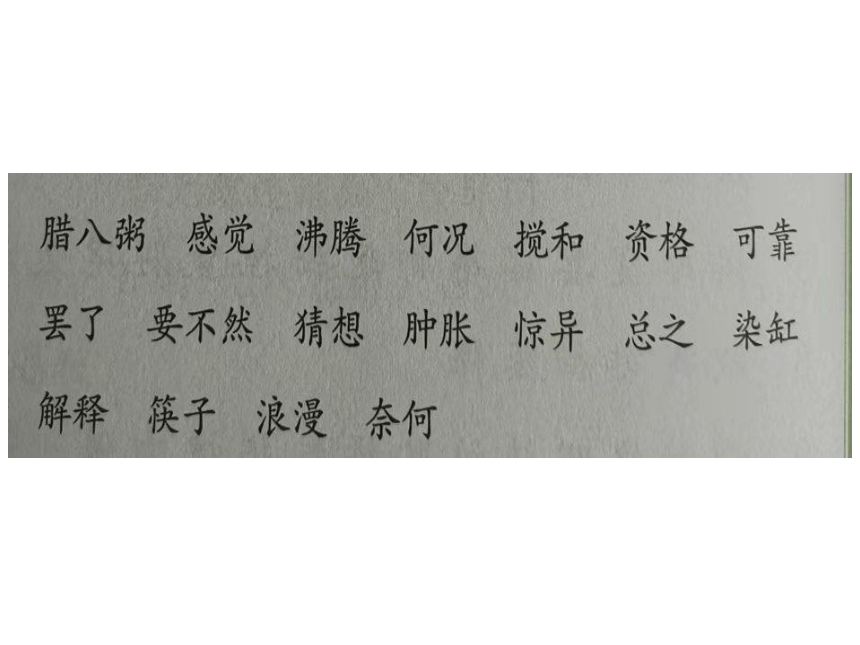 腊八粥 感觉 沸腾 何况 搅和 资格 可靠
罢了 要不然 猜想 肿胀 惊异 总之 染缸
解释 筷子 浪漫 奈何